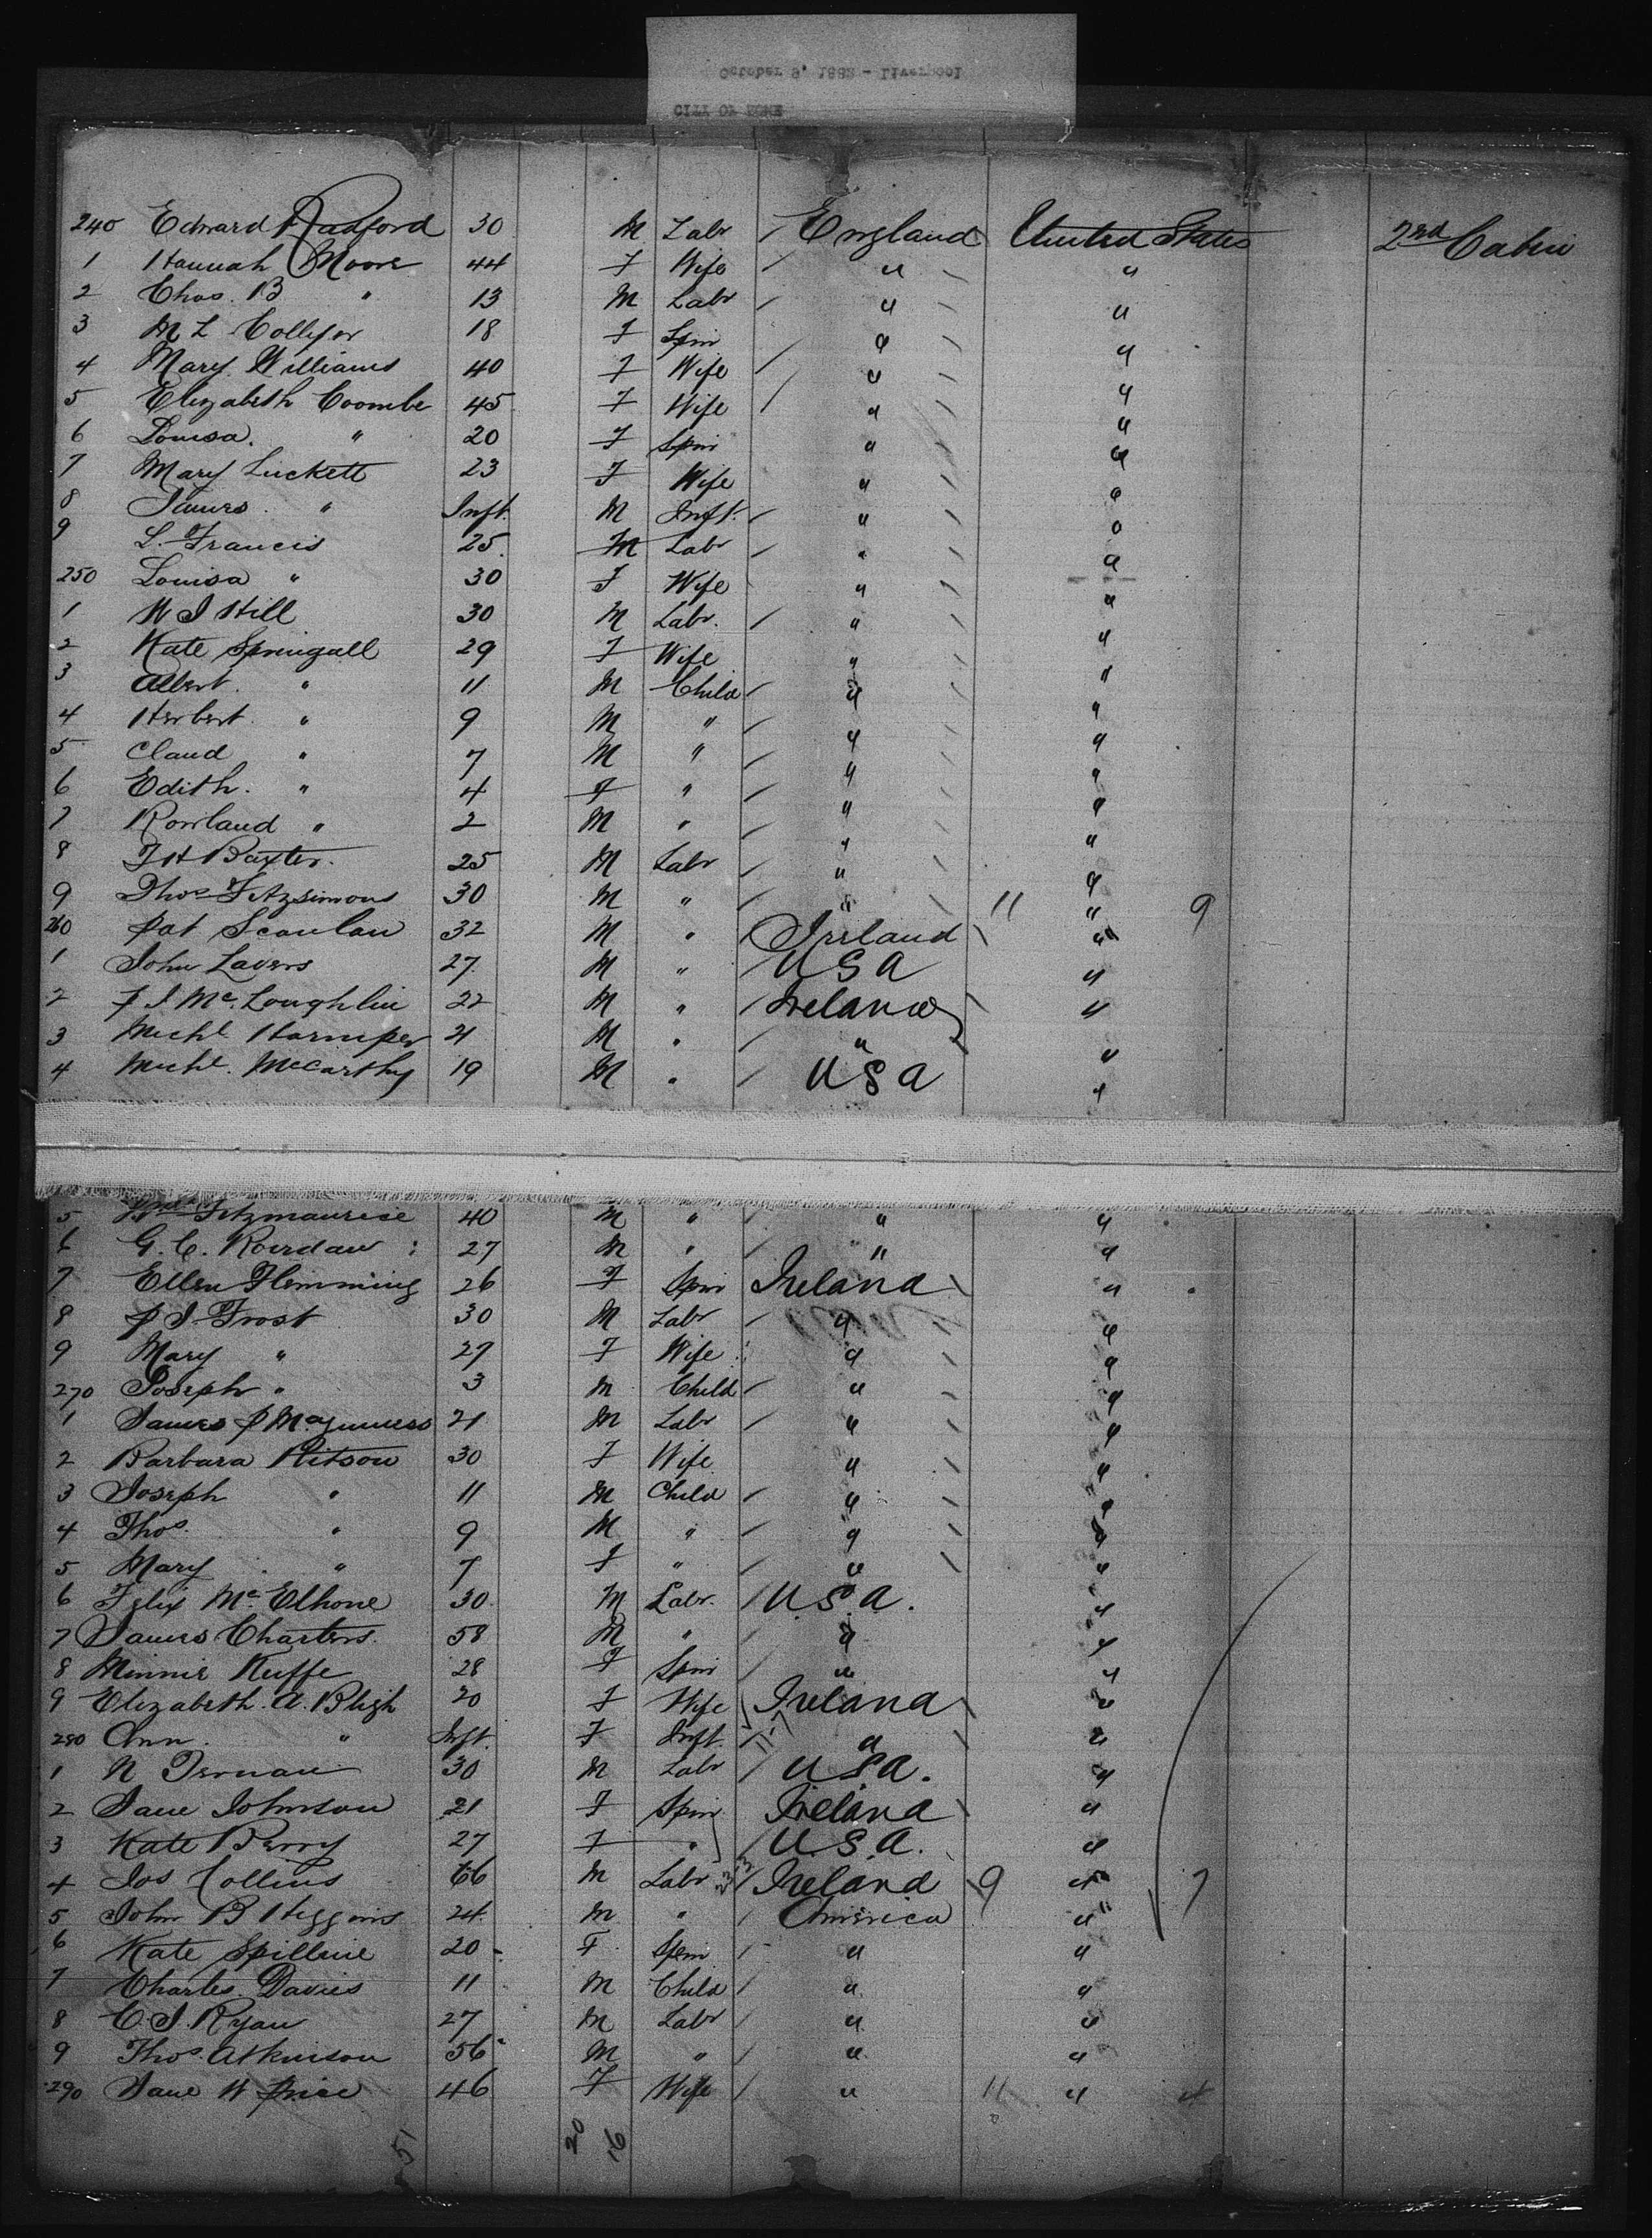 October 9, 1882 - Liverpool
CITY OF ROME
240 Edward Radford 30 M Labr / England United States 2nd Cabin
1 Hannah Moore 44 F Wife / " "
2 Chas. B " 13 M Labr / " "
3 M L 18 F Spin " "
4 Mary Williams 40 F Wife / " "
5 Elizabeth Coombe 45 F Wife / " "
6 Louisa. " 20 F Spin " "
7 Mary Luckett 23 F Wife " "
8 James " Inft. M Inft. / " "
9 L. Francis 25 M Labr / " "
250 Louisa " 30 F Wife " "
1 W J Hill 30 M Labr. / " "
2 Kate Springall 29 F Wife " "
3 Albert. " 11 M Child / " "
4 Herbert " 9 M " / " "
5 Claud " 7 M " / " "
6 Edith. " 4 F " / " "
7 Rowland " 2 M " / " "
8 F H Baxter. 25 M Labr / " "
9 Thos Fitzsimons 30 M " / " 11 " 9
260 Pat Scanlan 32 M " / Ireland "
1 John Lavers 27 M " / USA "
2 P J McLoughlin 22 M " / Ireland "
3 Michl 21 M " / " "
4 Michl. McCarthy 19 M " / USA "
5 Fitzmaurice 40 M " / " "
6 G. C. Rourdan 27 M " / " "
7 Ellen Flemming 26 F Spin Ireland "
8 P J Frost 30 M Labr / " "
9 Mary " 27 F Wife " "
270 Joseph " 3 M Child / " "
1 James P Maguiness 21 M Labr / " "
2 Barbara Ritson 30 F Wife " "
3 Joseph " 11 M Child / " "
4 Thos. " 9 M " / " "
5 Mary " 7 F " / " "
6 Felix McElhone 30 M Labr. / U.S.A. "
7 James Charters. 58 M " / " "
8 Minnie Kuffe 28 F Spin / " "
9 Elizabeth. A. Bligh 20 F Wife Ireland "
280 Ann. " Inft. F Inft. / " "
1 N Ternan 30 M Labr / USA. "
2 Jane Johnson 21 F Spin Ireland "
3 Kate Berry 27 F " / U.S.A. "
4 Jos Collins 66 M Labr / Ireland 9 " 7
5 John B Higgins 24 M " / America "
6 Kate Spillane 20 F Spin / " "
7 Charles Davies 11 M Child / " "
8 C. J. Ryan 27 M Labr / " "
9 Thos. Atkinson 56 M " / " "
290 Jane W Price 46 F Wife / " 11 " 4
51 20 16